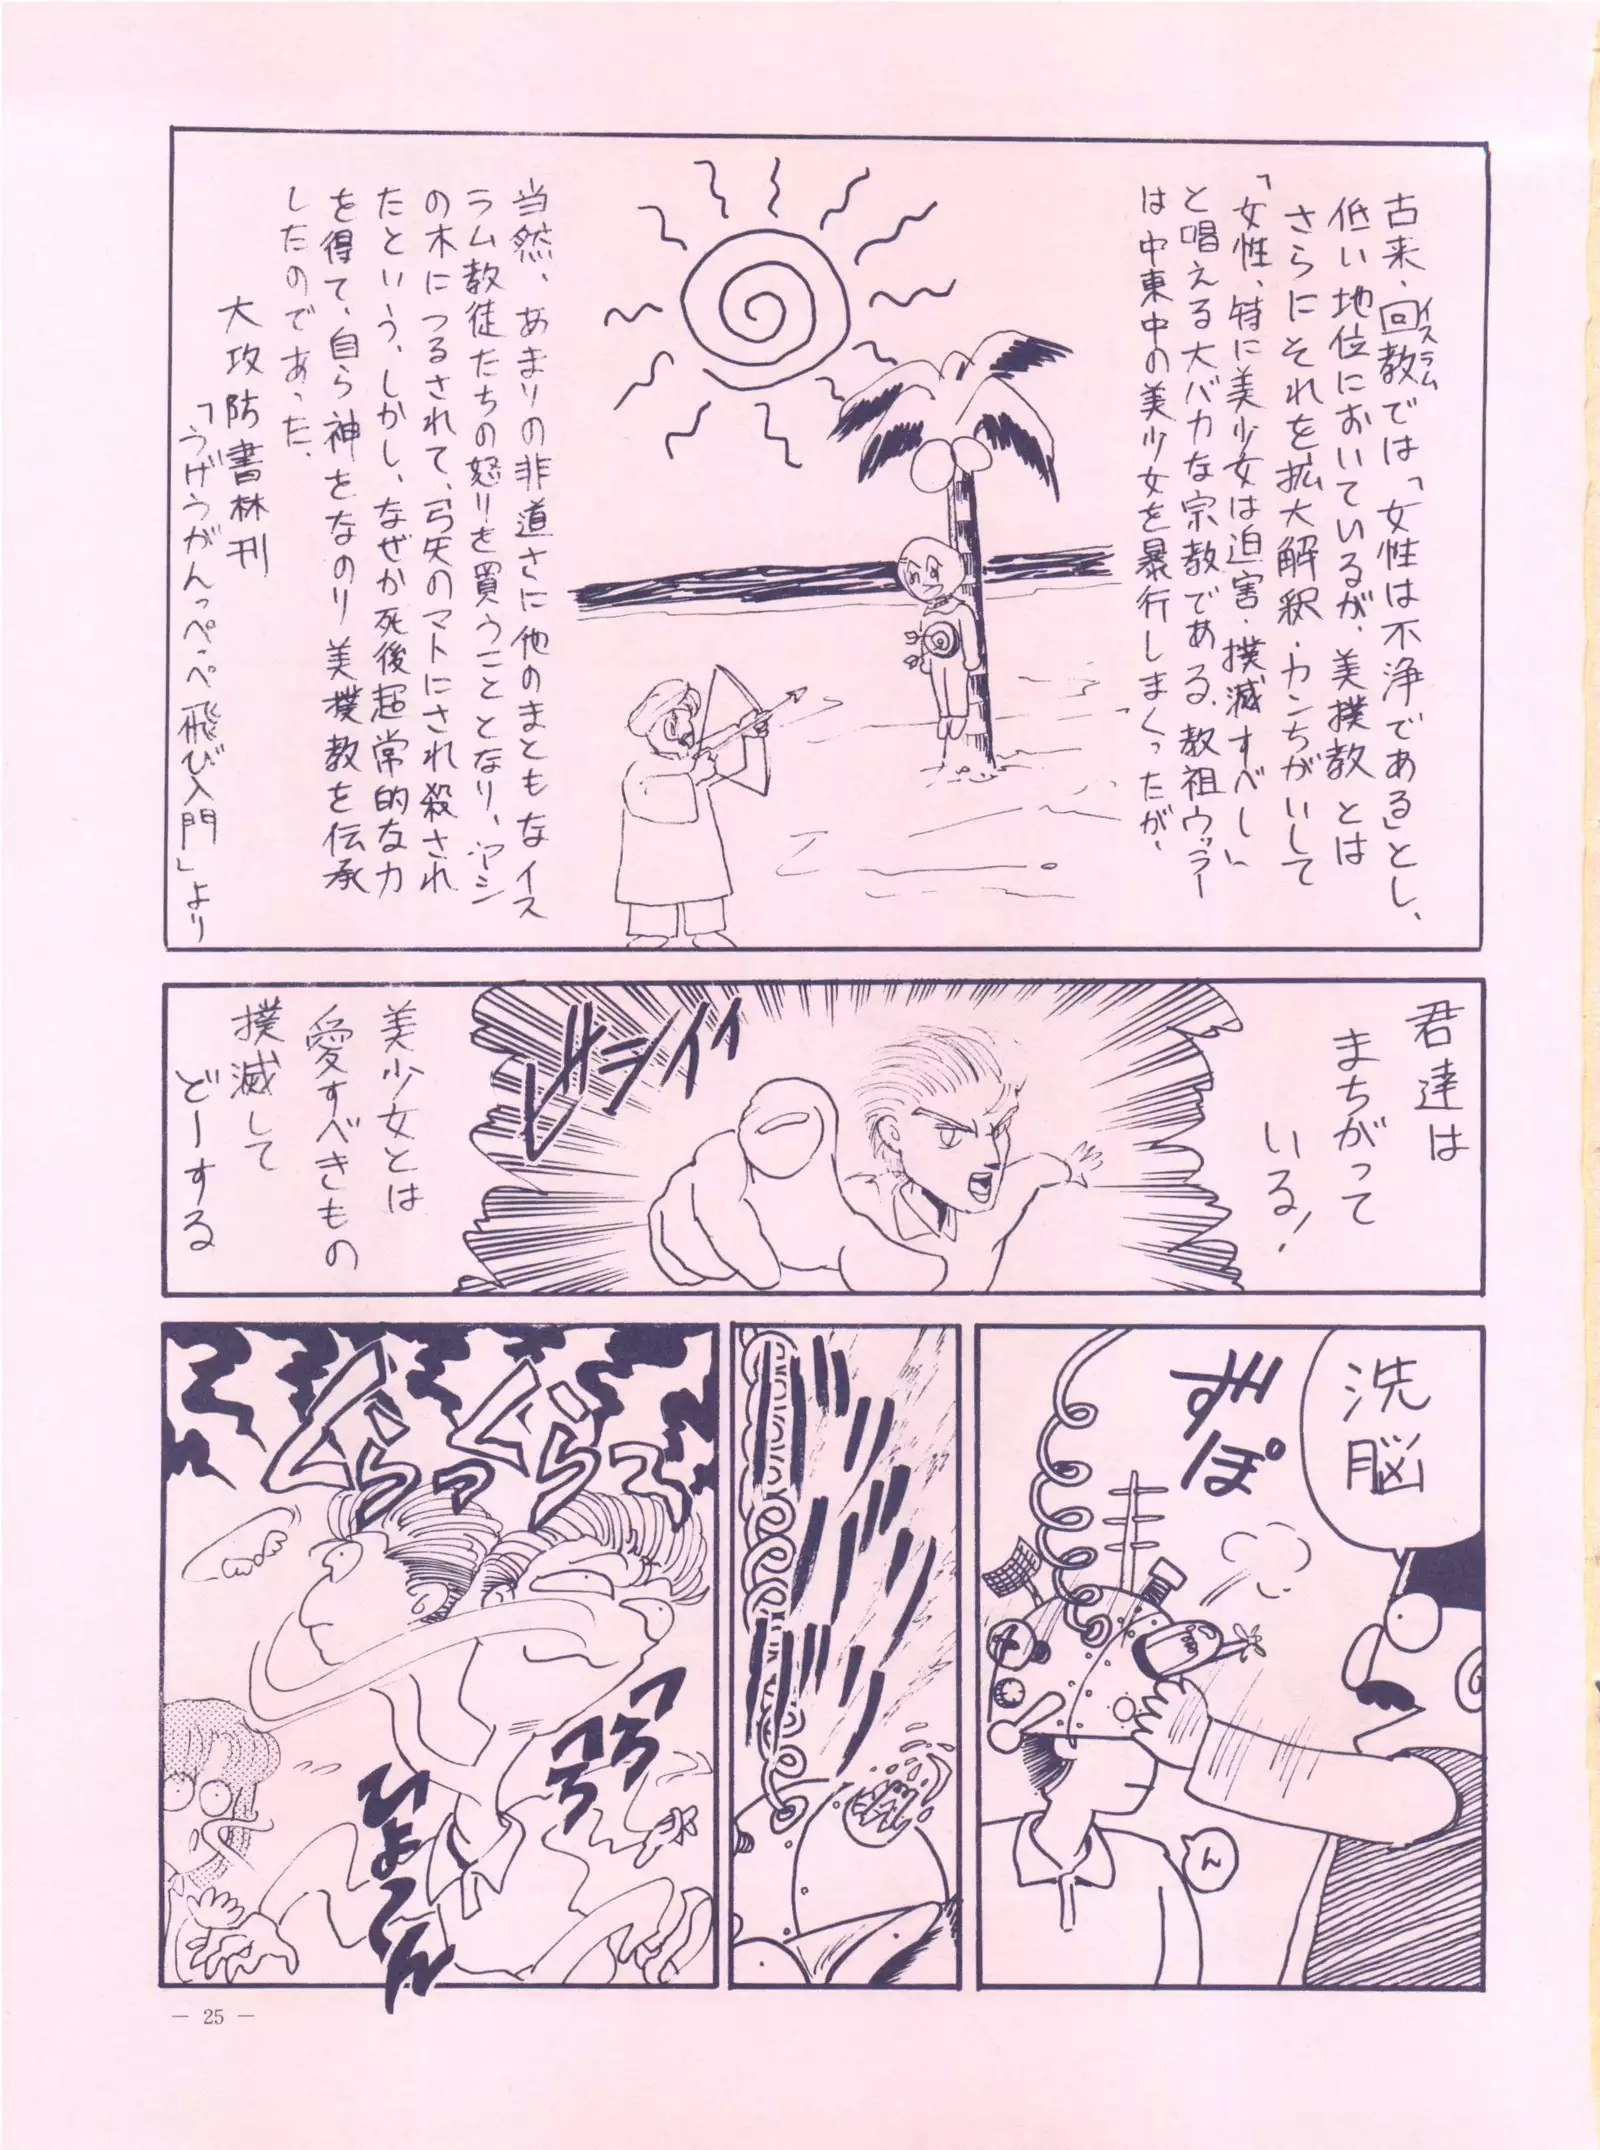 古来、回教では「女性は不浄である」とし、
イスラム
低い地位においているが、美撲教とは
さらにそれを拡大解釈・カンちがいして
「女性、特に美少女は迫害・撲滅すべし」
と唱える大バカな宗教である。教祖ウッラー
は中東中の美少女を暴行しまくったが、
当然、あまりの非道さに他のまともなイス
ラム教徒たちの怒りを買うこととなり、ヤシ
の木につるされて、弓矢のマトにされ殺され
たという。しかし、なぜか死後超常的な力
を得て、自ら神をなのり美撲教を伝承
したのであった。
大攻防書林刊
「うげうがんっぺぺ飛び入門」より
君達は
まちがって
いる!
美少女とは
愛すべきもの
撲滅して
どーする
洗脳
ずぽ
ん
ぐらっぐらっ
ひょくん
— 25 —